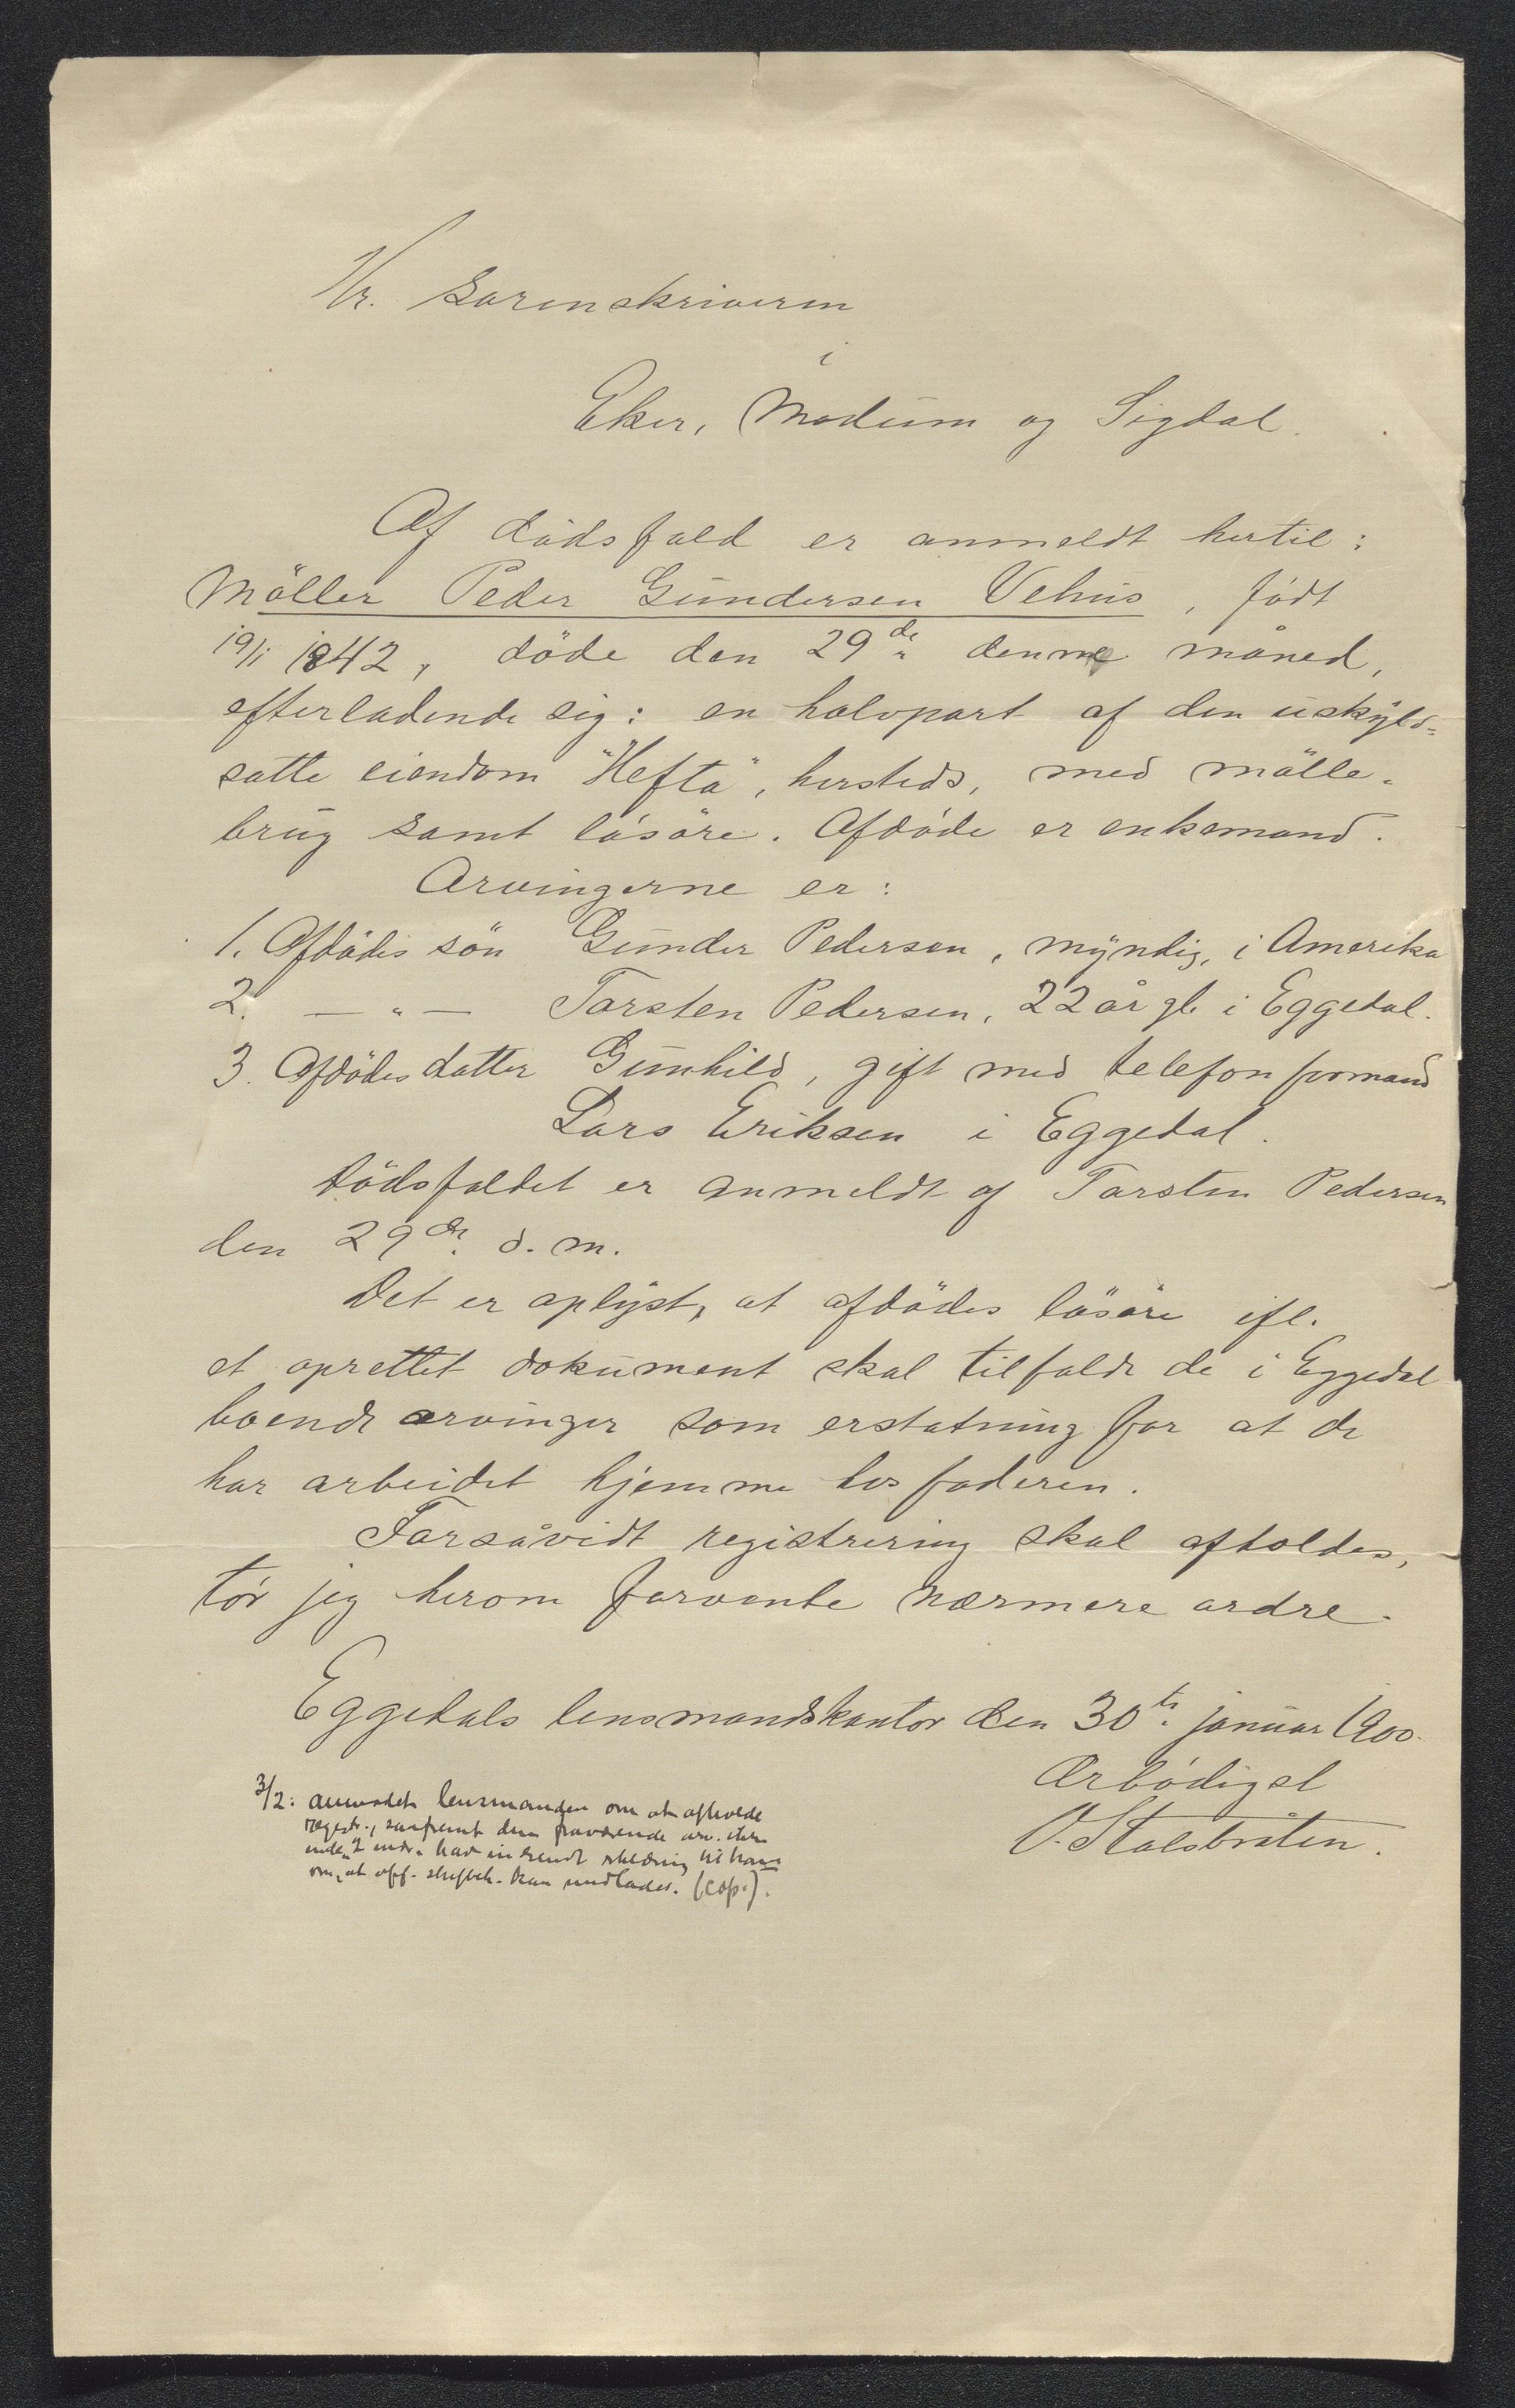 Hr. Sorenskriveren
i
Eker, Modum og Sigdal.
Af dödsfald er anmeldt hertil:
Möller Peder Gundersen Velhus, födt
19/1 1842, döde den 29de denne måned,
efterladende sig: en halvpart af den uskyld-
satte eiendom "Hefta", hersteds, med mölle-
brug samt lösöre. Afdöde er enkemand.
Arvingerne er:
1. Afdödes sön Gunder Pedersen, myndig, i Amerika
2. — " — Torsten Pedersen, 22 år gl. i Eggedal.
3. Afdödes datter Gunhild, gift med telefonformand
Lars Eriksen i Eggedal.
Dödsfaldet er anmeldt af Torsten Pedersen
den 29de d. m.
Det er oplyst, at afdödes lösöre ifl.
et oprettet dokument skal tilfalde de i Eggedal
boende arvinger som erstatning for at de
har arbeidet hjemme hos faderen.
Forsåvidt registrering skal afholdes,
tör jeg herom forvente nærmere ordre.
Eggedals lensmandskontor den 30te januar 1900.
Ærbödigst
O. Stalsbråten.
3/2: anmodet lensmanden om at afholde
registr., såfremt den fraværende arv. ikke
inden 2 mdr. har indsendt erklæring til ham
om, at off. skiftebeh. kan undlades. (cop.).